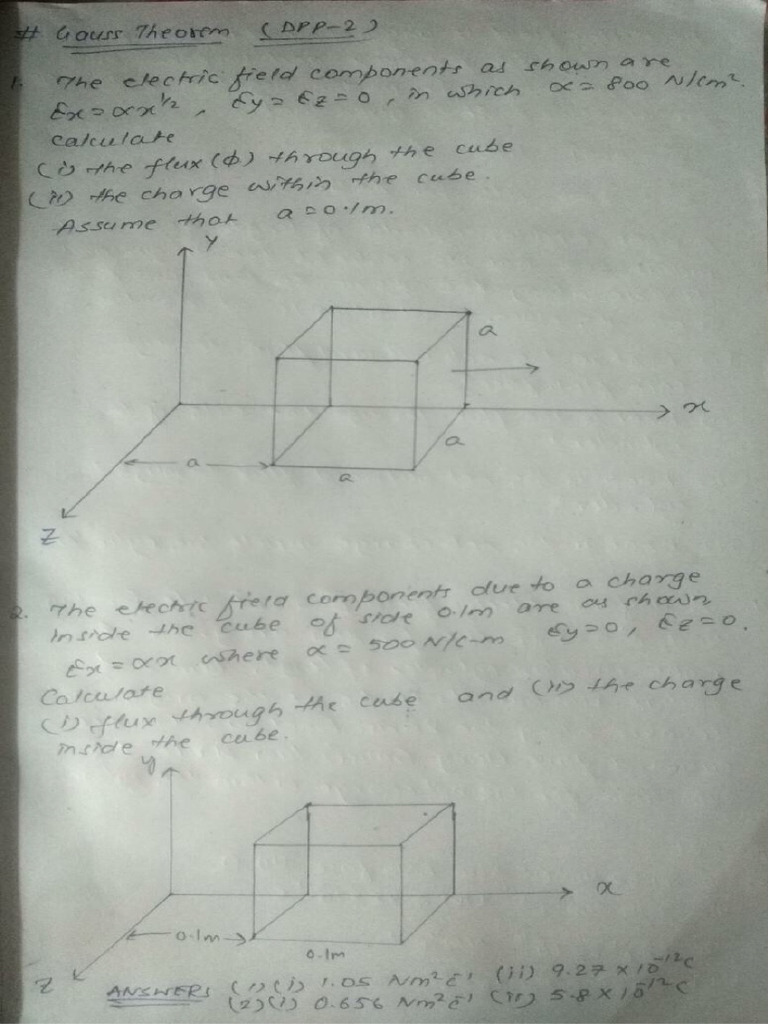 # Gauss Theorem (DPP-2)
1. The electric field components as shown are
Ex = αx^1/2, Ey = Ez = 0, in which α = 800 N/Cm².
Calculate
(i) the flux (ϕ) through the cube
(ii) the charge within the cube.
Assume that a = 0.1m.
Y
a
x
a
a
a
Z
2. The electric field components due to a charge
inside the cube of side 0.1m are as shown
Ex = αx where α = 500 N/C-m Ey=0, Ez=0.
Calculate
(i) flux through the cube and (ii) the charge
inside the cube.
y
x
0.1m
0.1m
Z
ANSWERS (1)(i) 1.05 Nm²C⁻¹ (ii) 9.27 × 10⁻¹²C
(2)(i) 0.656 Nm²C⁻¹ (ii) 5.8 × 10⁻¹²C